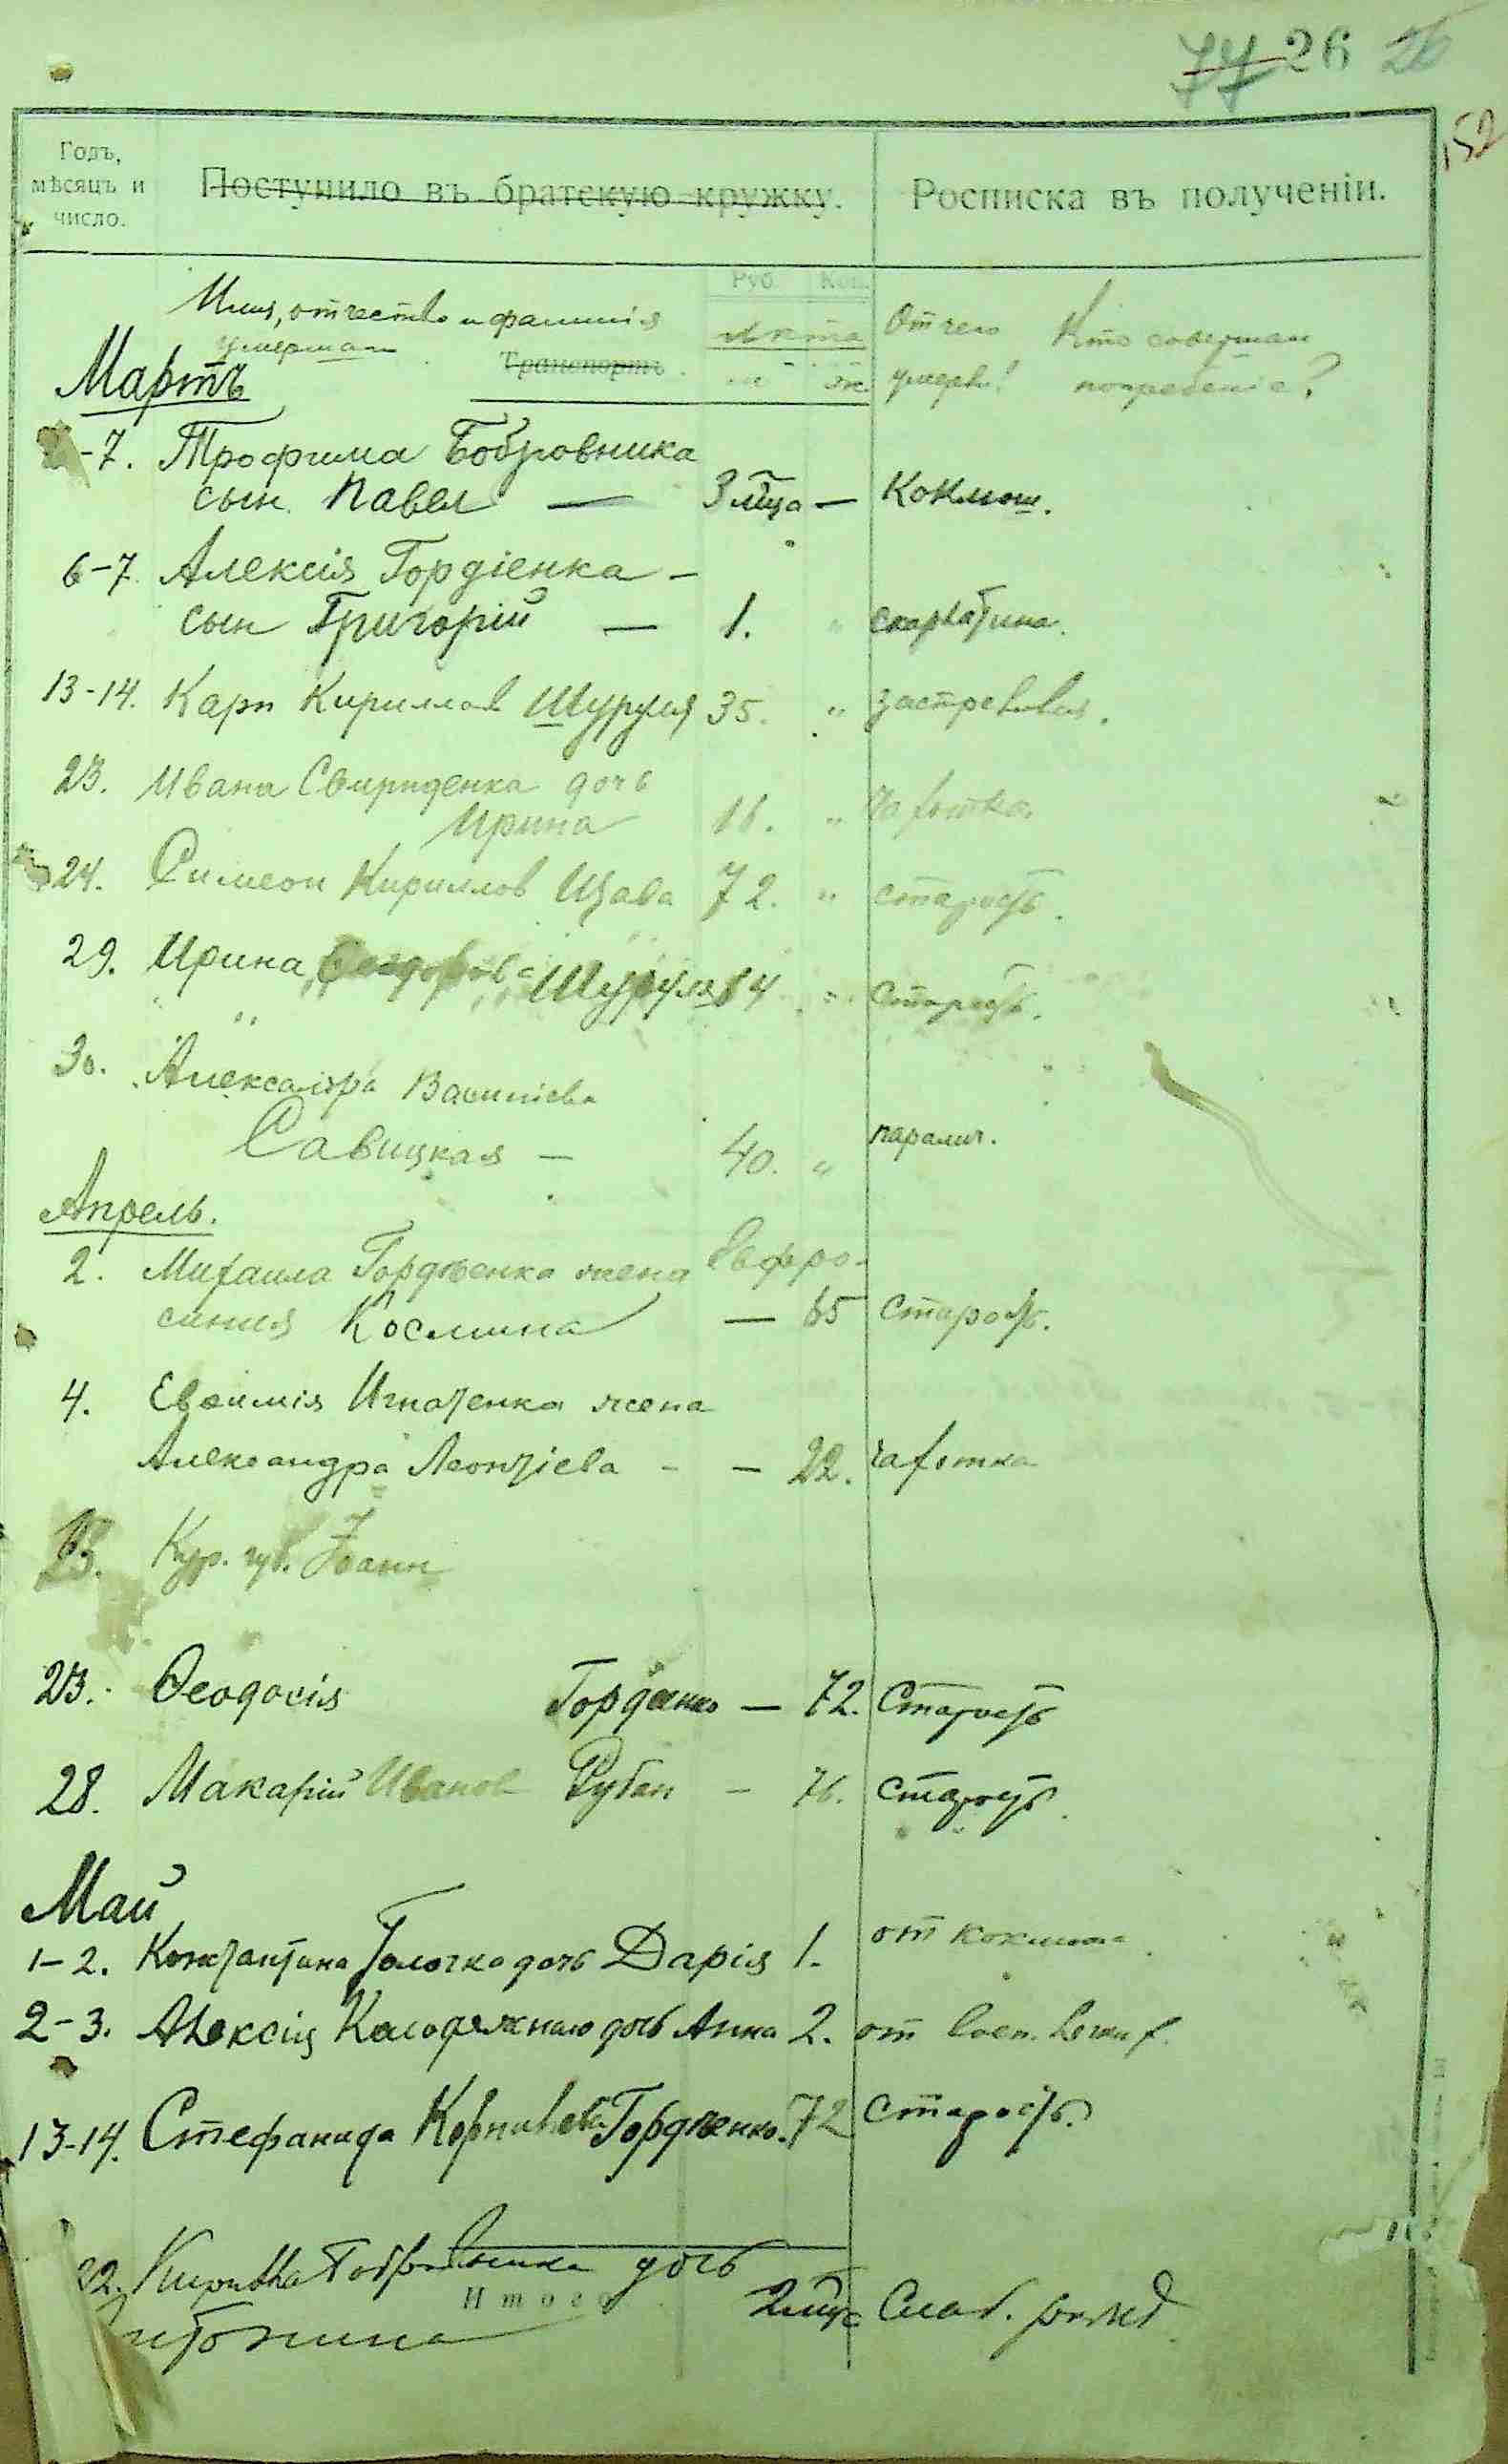 77 26 26
152
Годъ,
мѣсяцъ и
число.
Поступило въ братскую кружку.
Росписка въ полученіи.
Руб. Коп.
Имя, отчество и фамилія
умершаго
Транспортъ
лѣта
м ж
Отчего
умеръ?
Кто совершал
погребеніе?
Мартъ
-7. Трофима Бобровника
сын Павел — 3 м̃ца — Коклюш.
6-7. Алексія Гордіенка —
сын Григорій — 1. " скарлатина.
13-14. Карп Кириллов Шуруля 35. "
23. Ивана Свириденка дочь
Ирина 16. " чахотка.
24. Симеон Кириллов Щава 72. " старость.
29. Ирина Шуруля " старость.
30. Александра Василіева
Савицкая — 40. " паралич.
Апрель.
2. Михаила Гордѣенка жена Евфро-
синия Космина — 65 старость.
4. Евѳимія Игнатенка жена
Александра Леонтіева - — 22. чахотка
Кур. губ. Іоанн
23. Ѳеодосія Гордѣенко — 72. Старость
28. Макарій Иванов Рубан — 76. старость.
Май
1-2. Константина Голочка дочь Дарія 1. от коклюша.
2-3. Алексія Колодяжнаго дочь Анна 2. от восп. легких.
13-14. Стефанида Корнилова Гордѣенко. 72 старость.
22. Кирилла Бобровника дочь
Антонина 2 м̃ца Слаб. рожд.
Итого